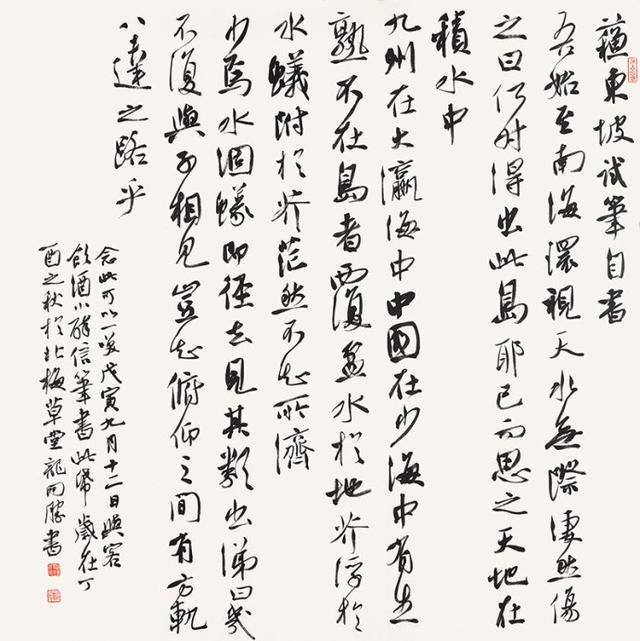 蘇東坡試筆自書
吾始至南海環視天水無際悽然傷
之曰何时得出此島耶已而思之天地在
積水中
九州在大瀛海中中國在少海中有生
熟不在島者覆盆水於地芥浮於
水蟻附於芥茫然不知所濟
少焉水涸蟻即徑去見其類出涕曰幾
不復與子相見豈知俯仰之間有方軌
八達之路乎
念此可以一笑戊寅九月十二日與客
飲酒小醉信筆書此紙歲在丁
酉之秋於北梅草堂龍開勝書